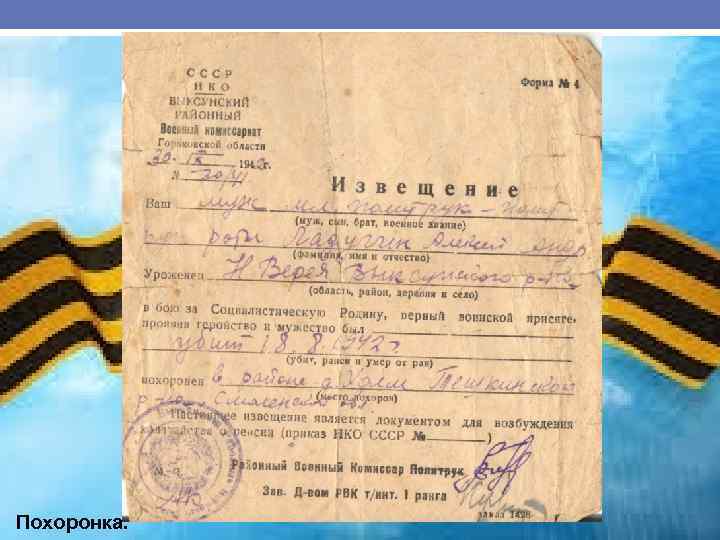 СССР
НКО
ВЫКСУНСКИЙ
РАЙОННЫЙ
Военный комиссариат
Горьковской области
Форма № 4
30. IX 194 г.
№
Извещение
Ваш муж мл. политрук – полит
(муж, сын, брат, воинское звание)
роты Ладугин Алексей Андр
(фамилия, имя и отчество)
Уроженец Н Верея Выксунского р-на
(область, район, деревня и село)
в бою за Социалистическую Родину, верный воинской присяге,
проявив геройство и мужество был
убит 18.8.1942 г
(убит, ранен и умер от ран)
похоронен в районе д. Холм
(место похорон)
Смоленской обл
Настоящее извещение является документом для возбуждения
ходатайства о пенсии (приказ НКО СССР № )
М. П.
Районный Военный Комиссар Политрук
Зав. Д-вом РВК т/инт. 1 ранга
заказ 1428
Похоронка.